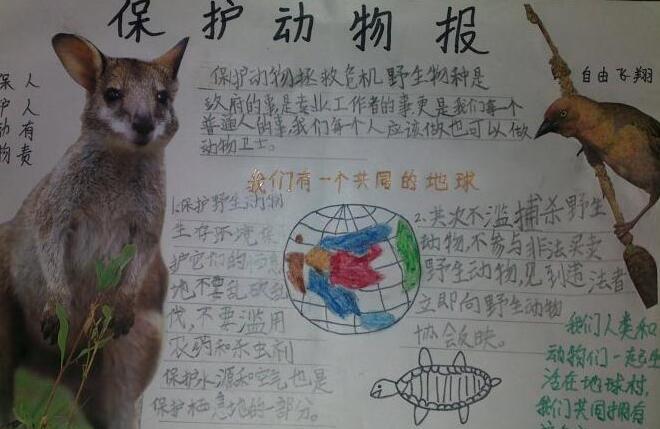 保护动物报
保护动物 人人有责
自由飞翔
保护动物拯救危机野生物种是
政府的事是专业工作者的事更是我们每一个
普通人的事,我们每个人应该做也可以做
动物卫士。
我们有一个共同的地球
1.保护野生动物
生存环境保
护它们的
地不要乱砍乱
伐,不要滥用
农药和杀虫剂
保护水源和空气也是
保护栖息地的一部分。
2.其次不滥捕杀野生
动物,不参与非法买卖
野生动物,见到违法者
立即向野生动物
协会反映。
我们人类和
动物们一起生
活在地球村,
我们共同拥有